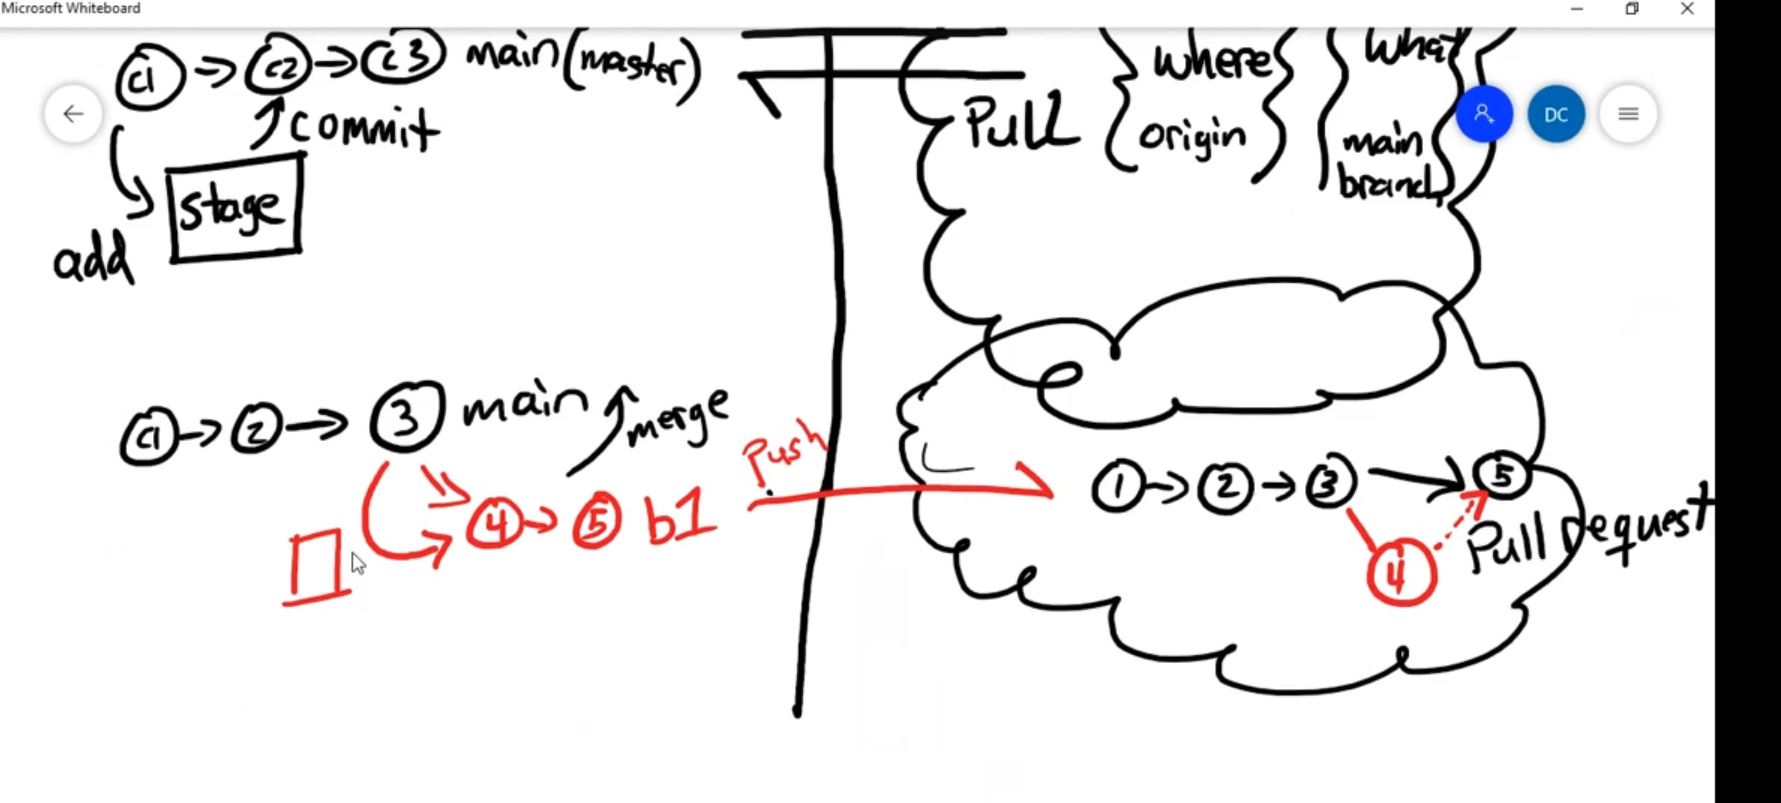 Microsoft Whiteboard
c1 → c2 → c3 main (master)
commit
add
stage
Pull
where
origin
what
main
branch
DC
c1 → 2 → 3 main merge
Push
4 → 5 b1
1 → 2 → 3 → 5
4
Pull request